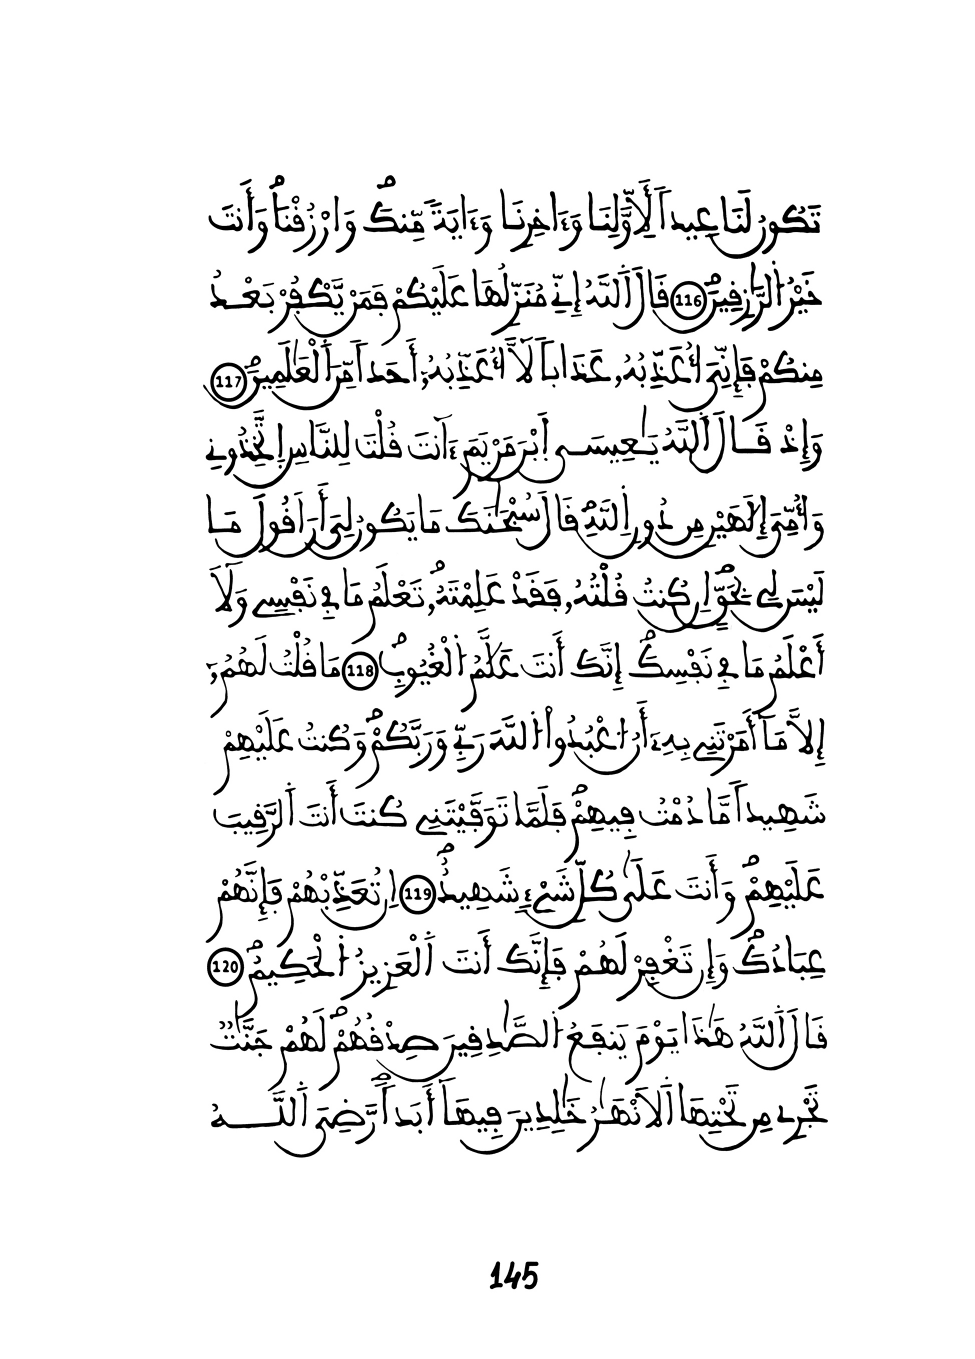 تَكُونُ لَنَا عِيداً لِّأَوَّلِنَا وَءَاخِرِنَا وَءَايَةً مِّنكَ وَارْزُقْنَا وَأَنتَ
خَيْرُ الرَّٰزِقِينَ 116 قَالَ اَللَّهُ إِنِّے مُنَزِّلُهَا عَلَيْكُمْ فَمَنْ يَّكْفُرْ بَعْدُ
مِنكُمْ فَإِنِّيَ أُعَذِّبُهُۥ عَذَاباً لَّآ أُعَذِّبُهُۥٓ أَحَداً مِّنَ اَلْعَٰلَمِينَ 117
وَإِذْ قَالَ اَللَّهُ يَٰعِيسَى اَبْنَ مَرْيَمَ ءَآنتَ قُلْتَ لِلنَّاسِ اِتَّخِذُونِے
وَأُمِّيَ إِلَٰهَيْنِ مِن دُونِ اِللَّهِ قَالَ سُبْحَٰنَكَ مَا يَكُونُ لِيَ أَنَ اَقُولَ مَا
لَيْسَ لِے بِحَقٍّ اِن كُنتُ قُلْتُهُۥ فَقَدْ عَلِمْتَهُۥ تَعْلَمُ مَا فِے نَفْسِے وَلَآ
أَعْلَمُ مَا فِے نَفْسِكَ إِنَّكَ أَنتَ عَلَّٰمُ اُلْغُيُوبِ 118 مَا قُلْتُ لَهُمُۥٓ
إِلَّا مَآ أَمَرْتَنِے بِهِۦٓ أَنُ اُعْبُدُواْ اُللَّهَ رَبِّے وَرَبَّكُمْ وَكُنتُ عَلَيْهِمْ
شَهِيداً مَّا دُمْتُ فِيهِمْ فَلَمَّا تَوَفَّيْتَنِے كُنتَ أَنتَ اَلرَّقِيبَ
عَلَيْهِمْ وَأَنتَ عَلَىٰ كُلِّ شَےْءٍ شَهِيدٌ 119 اِن تُعَذِّبْهُمْ فَإِنَّهُمْ
عِبَادُكَ وَإِن تَغْفِرْ لَهُمْ فَإِنَّكَ أَنتَ اَلْعَزِيزُ اُلْحَكِيمُ 120
قَالَ اَللَّهُ هَٰذَا يَوْمَ يَنفَعُ اُلصَّٰدِقِينَ صِدْقُهُمْ لَهُمْ جَنَّٰتٌ
تَجْرِے مِن تَحْتِهَا اَلَانْهَٰرُ خَٰلِدِينَ فِيهَآ أَبَداً رَّضِيَ اَللَّهُ
145